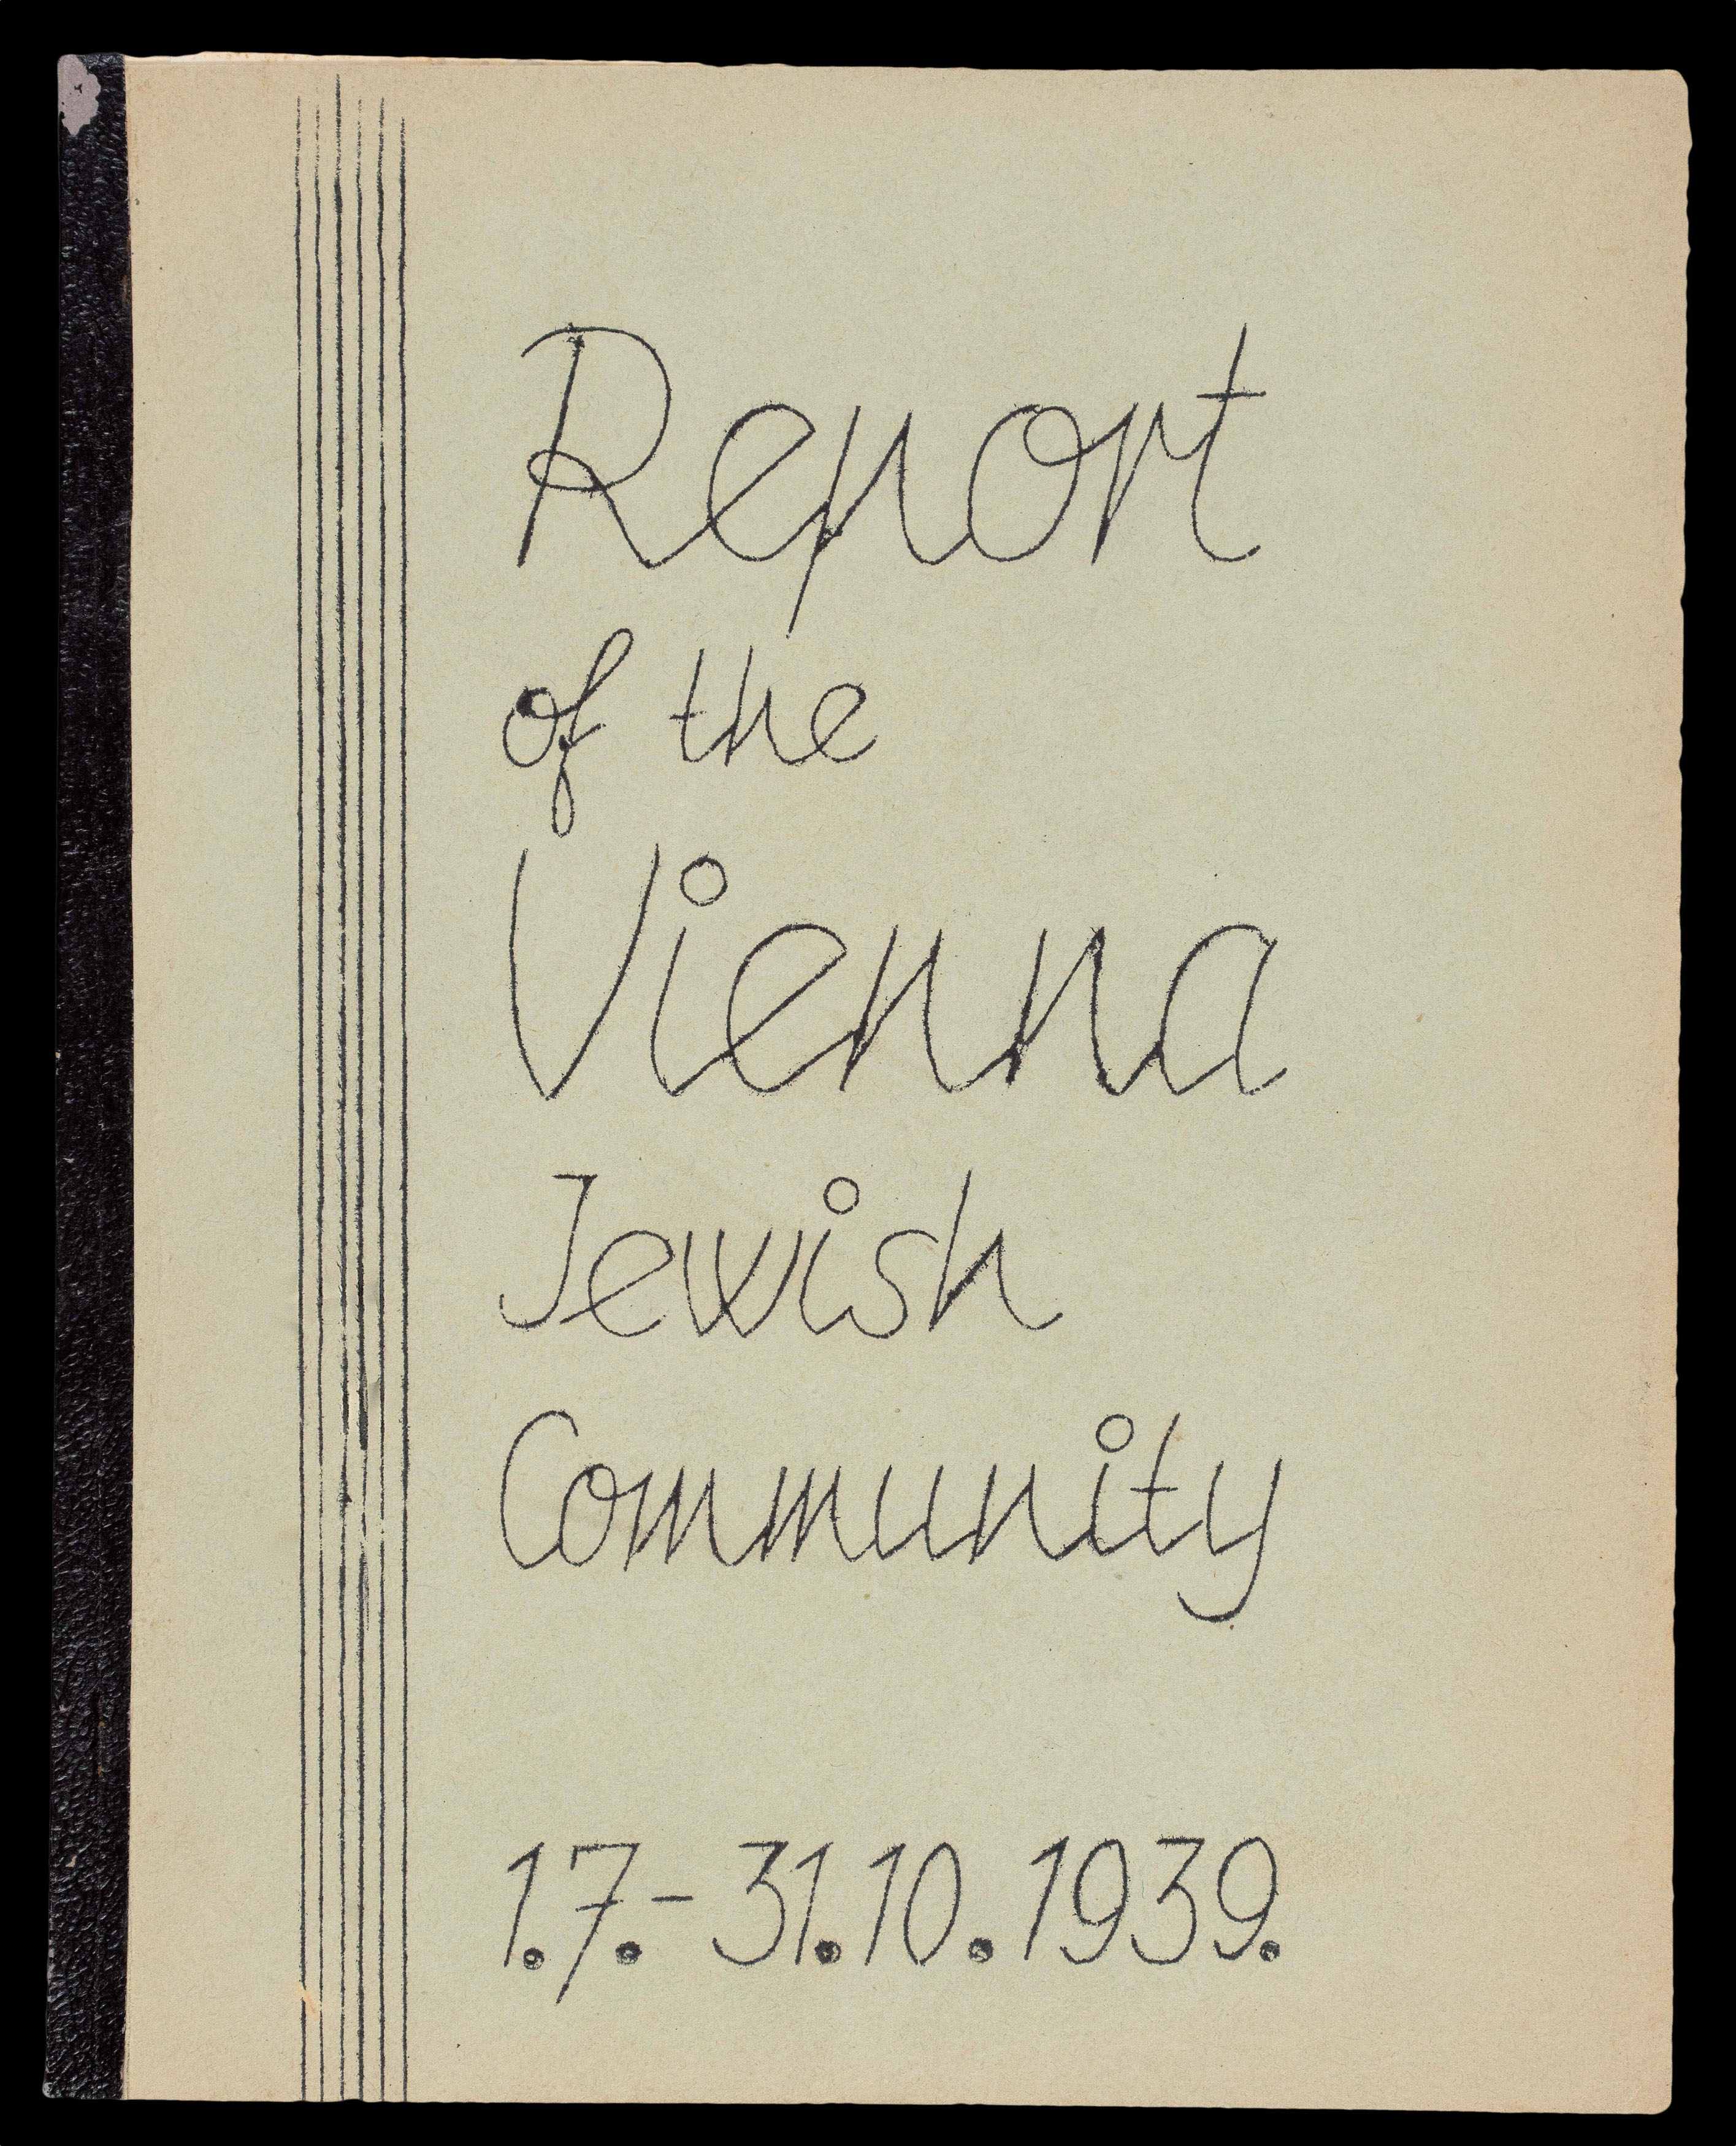 Report
of the
Vienna
Jewish
Community
1.7.-31.10.1939.